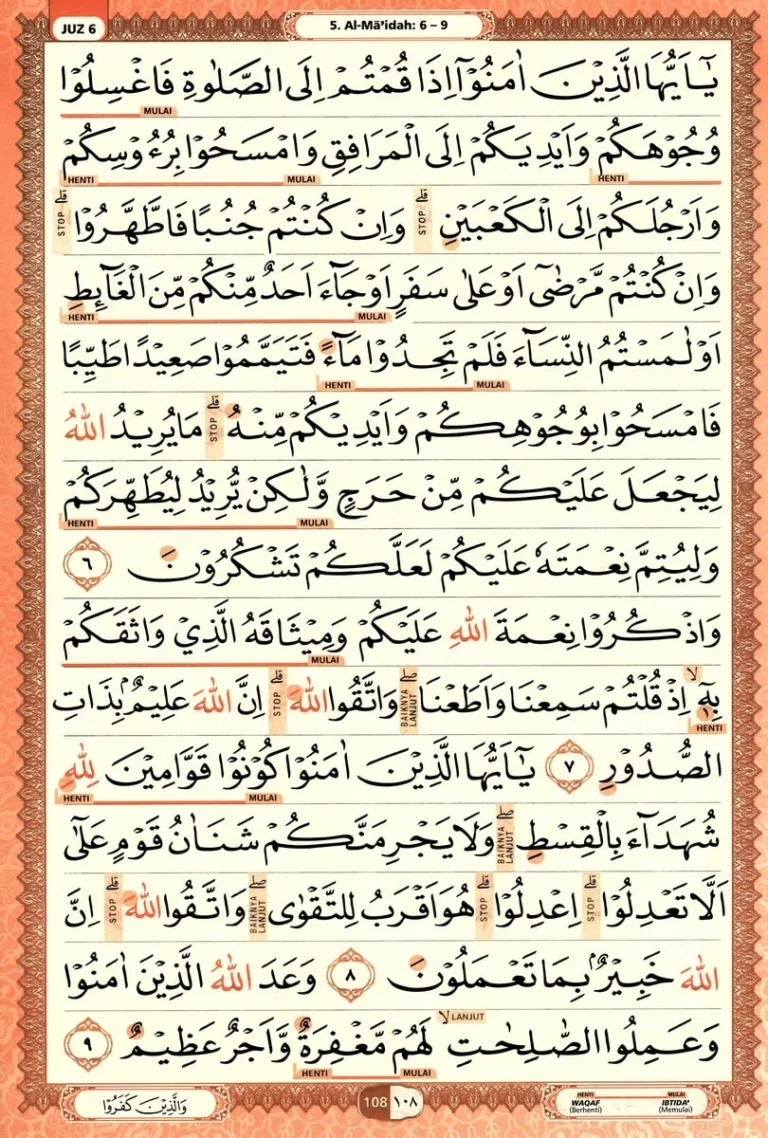 JUZ 6
5. Al-Mā'idah: 6 – 9
يٰٓاَيُّهَا الَّذِيْنَ اٰمَنُوْٓا اِذَا قُمْتُمْ اِلَى الصَّلٰوةِ فَاغْسِلُوْا
MULAI
وُجُوْهَكُمْ وَاَيْدِيَكُمْ اِلَى الْمَرَافِقِ وَامْسَحُوْا بِرُءُوْسِكُمْ
HENTI MULAI HENTI
وَاَرْجُلَكُمْ اِلَى الْكَعْبَيْنِ ۗ STOP وَاِنْ كُنْتُمْ جُنُبًا فَاطَّهَّرُوْا ۗ STOP
وَاِنْ كُنْتُمْ مَّرْضٰٓى اَوْ عَلٰى سَفَرٍ اَوْ جَاۤءَ اَحَدٌ مِّنْكُمْ مِّنَ الْغَاۤىِٕطِ
HENTI MULAI
اَوْ لٰمَسْتُمُ النِّسَاۤءَ فَلَمْ تَجِدُوْا مَاۤءً فَتَيَمَّمُوْا صَعِيْدًا طَيِّبًا
HENTI MULAI
فَامْسَحُوْا بِوُجُوْهِكُمْ وَاَيْدِيْكُمْ مِّنْهُ ۗ STOP مَا يُرِيْدُ اللّٰهُ
لِيَجْعَلَ عَلَيْكُمْ مِّنْ حَرَجٍ وَّلٰكِنْ يُّرِيْدُ لِيُطَهِّرَكُمْ
HENTI MULAI
وَلِيُتِمَّ نِعْمَتَهٗ عَلَيْكُمْ لَعَلَّكُمْ تَشْكُرُوْنَ ٦
وَاذْكُرُوْا نِعْمَةَ اللّٰهِ عَلَيْكُمْ وَمِيْثَاقَهُ الَّذِيْ وَاثَقَكُمْ
MULAI
بِهٖٓ ۙ اِذْ قُلْتُمْ سَمِعْنَا وَاَطَعْنَا ۖ BAIKNYA LANJUT وَاتَّقُوا اللّٰهَ ۗ STOP اِنَّ اللّٰهَ عَلِيْمٌ ۢبِذَاتِ
HENTI
الصُّدُوْرِ ٧ يٰٓاَيُّهَا الَّذِيْنَ اٰمَنُوْا كُوْنُوْا قَوَّامِيْنَ لِلّٰهِ
HENTI MULAI
شُهَدَاۤءَ بِالْقِسْطِ ۖ BAIKNYA LANJUT وَلَا يَجْرِمَنَّكُمْ شَنَاٰنُ قَوْمٍ عَلٰٓى
اَلَّا تَعْدِلُوْا ۗ STOP اِعْدِلُوْا ۗ STOP هُوَ اَقْرَبُ لِلتَّقْوٰى ۖ BAIKNYA LANJUT وَاتَّقُوا اللّٰهَ ۗ STOP اِنَّ
اللّٰهَ خَبِيْرٌ ۢبِمَا تَعْمَلُوْنَ ٨ وَعَدَ اللّٰهُ الَّذِيْنَ اٰمَنُوْا
وَعَمِلُوا الصّٰلِحٰتِ ۙ LANJUT لَهُمْ مَّغْفِرَةٌ وَّاَجْرٌ عَظِيْمٌ ٩
HENTI MULAI
وَالَّذِيْنَ كَفَرُوْا
108 ١٠٨
HENTI MULAI
WAQAF IBTIDA'
(Berhenti) (Memulai)